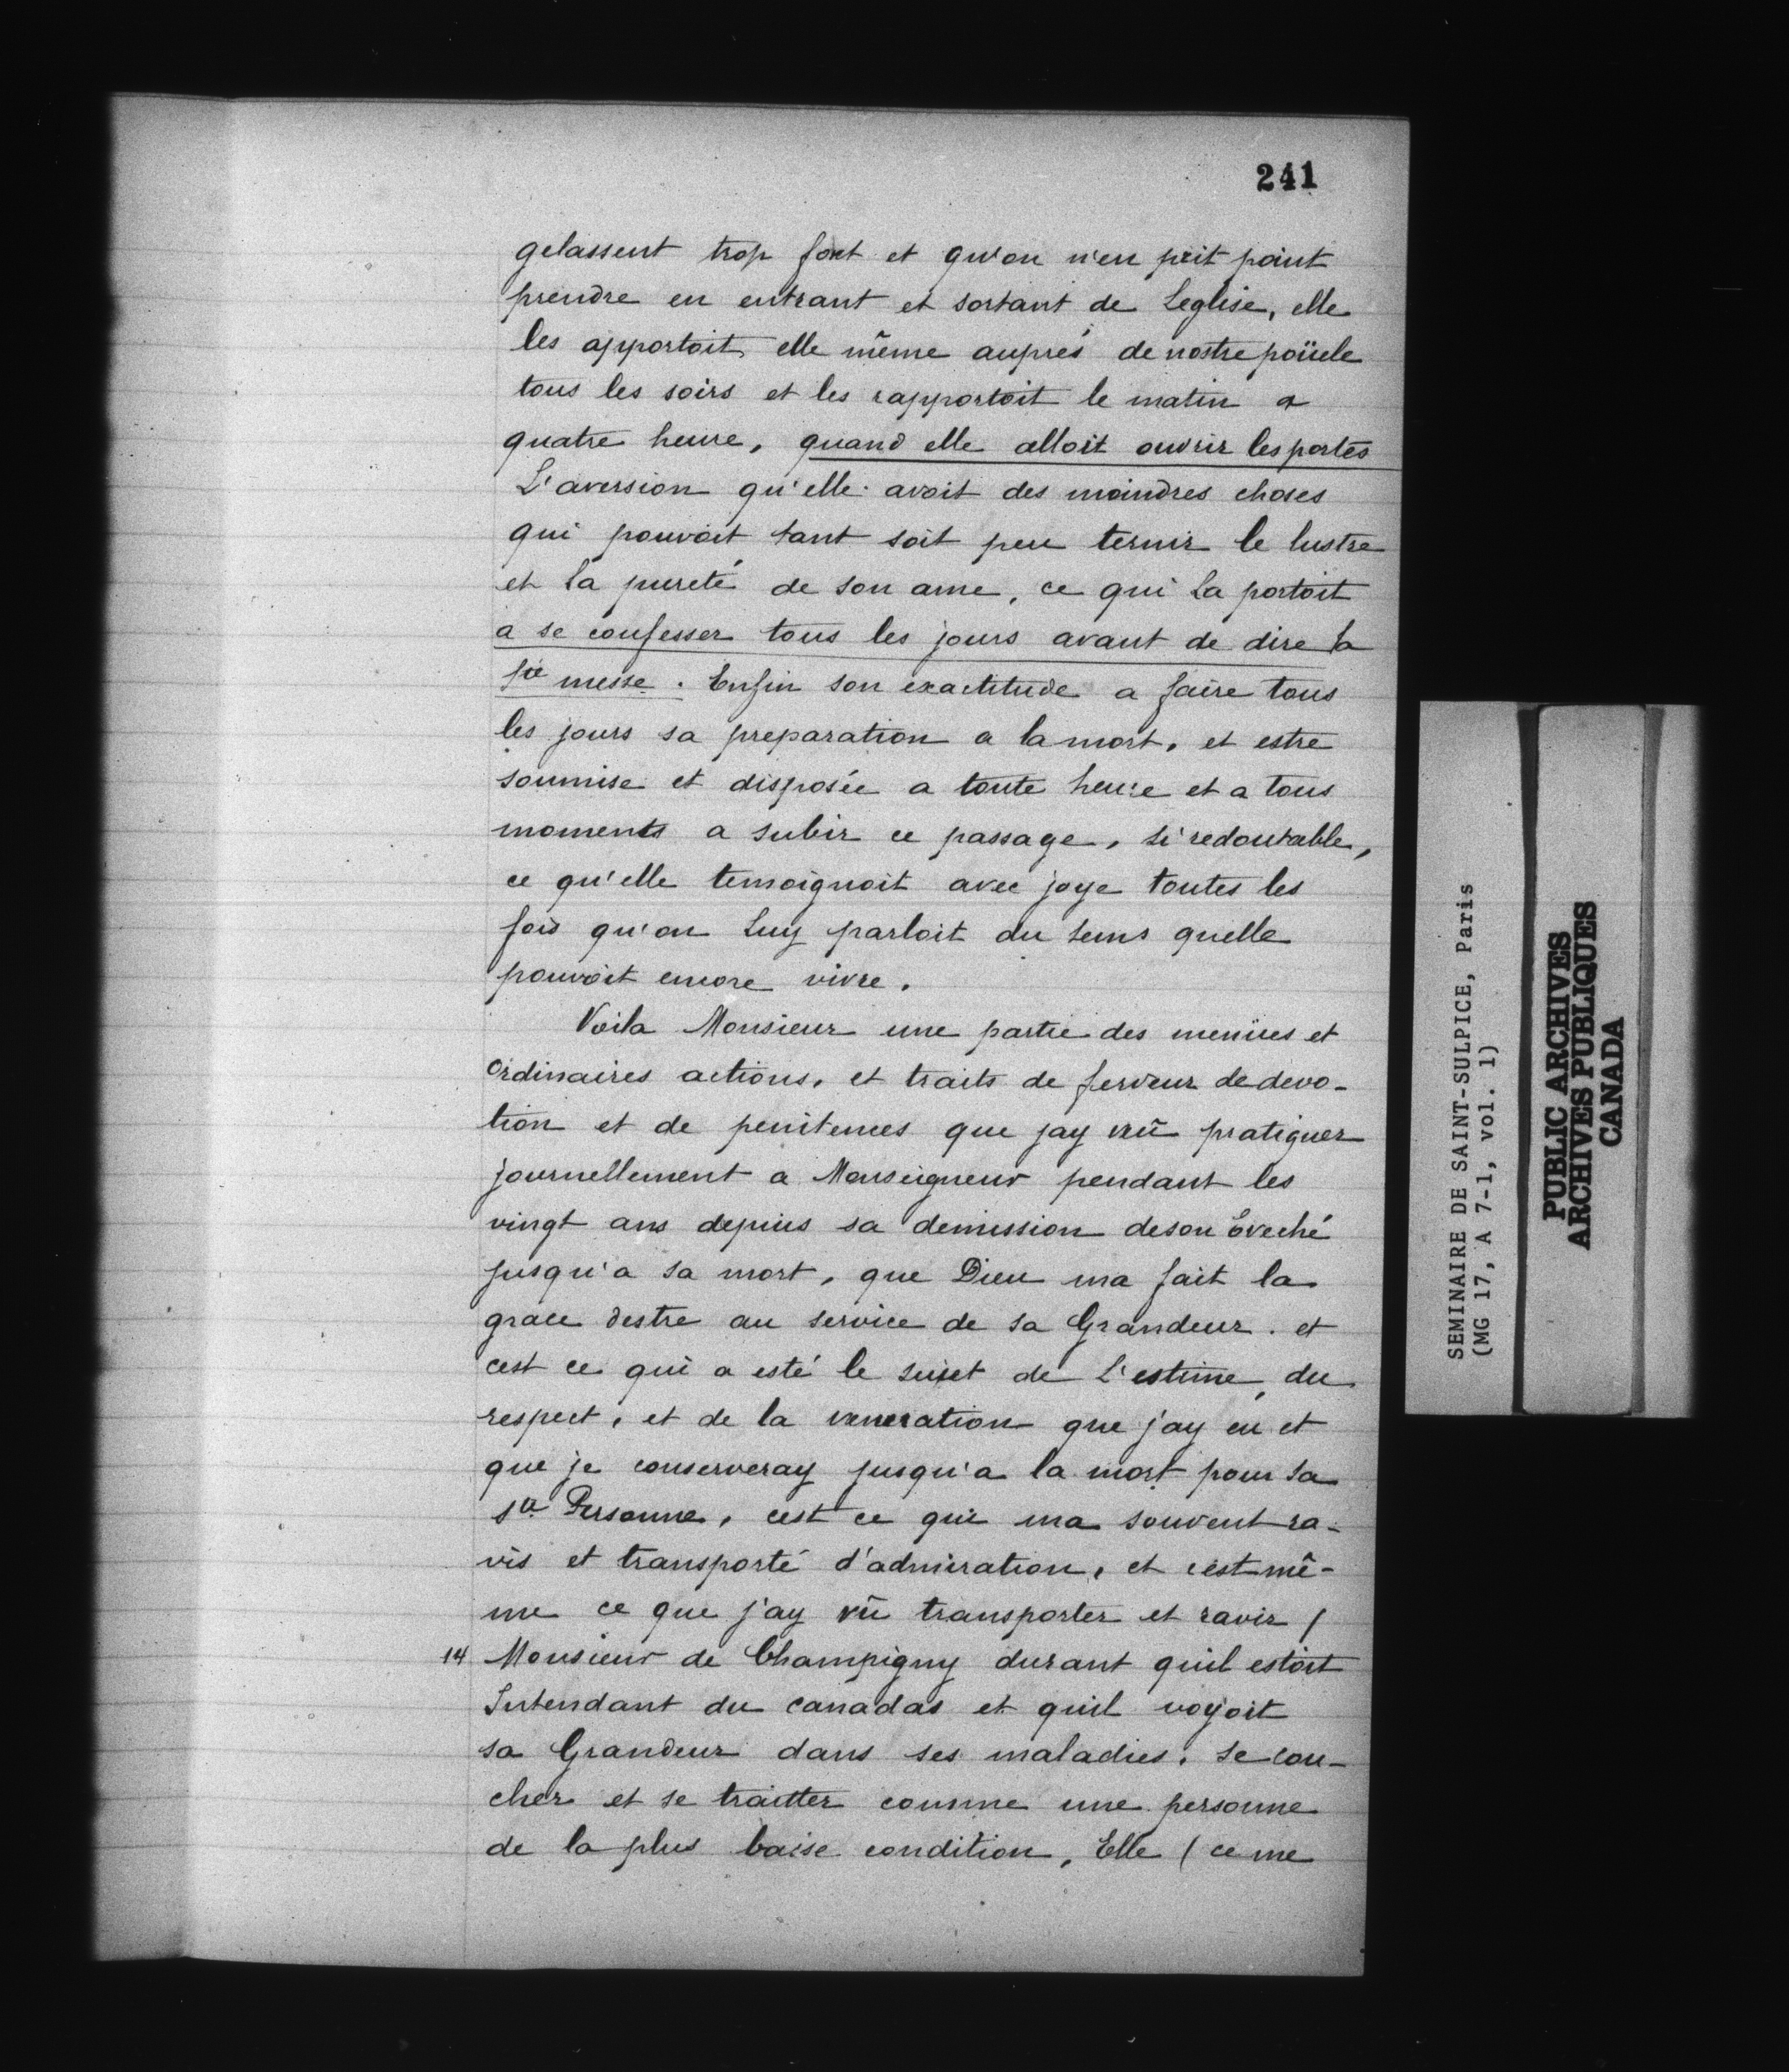 241
gelassent trop fort et qu'on n'en pût point
prendre en entrant et sortant de Leglise, elle
les apportoit elle même auprés de nostre poüele
tous les soirs et les rapportoit le matin a
quatre heure, quand elle alloit ouvrir les portes
L'aversion qu'elle avoit des moindres choses
qui pouvoit tant soit peu ternir le lustre
et la pureté de son ame, ce qui la portoit
a se confesser tous les jours avant de dire la
ste messe. Enfin son exactitude a faire tous
les jours sa preparation a la mort, et estre
soumise et disposée a toute heure et a tous
moments a subir ce passage, si redoutable,
ce qu'elle temoignoit avec joye toutes les
fois qu'on Luy parloit du tems quelle
pouvoit encore vivre.
Voila Monsieur une partie des menües et
ordinaires actions, et traits de ferveur de devo-
tion et de penitences que jay vû pratiquer
journellement a Monseigneur pendant les
vingt ans depuis sa demission de son Eveché
jusqu'a sa mort, que Dieu ma fait la
grace destre au service de sa Grandeur. et
cest ce qui a esté le sujet de L'estime, du
respect, et de la veneration que j'ay eu et
que je conserveray jusqu'a la mort pour sa
ste Personne, cest ce qui ma souvent ra-
vis et transporté d'admiration, et cest mê-
me ce que j'ay vû transporter et ravir /
14 Monsieur de Champigny durant quil estoit
Intendant du canadas et quil voyoit
sa Grandeur dans ses maladies, se cou-
cher et se traitter comme une personne
de la plus baise condition, Elle (ce me
SEMINAIRE DE SAINT-SULPICE, Paris
(MG 17, A 7-1, vol. 1)
PUBLIC ARCHIVES
ARCHIVES PUBLIQUES
CANADA